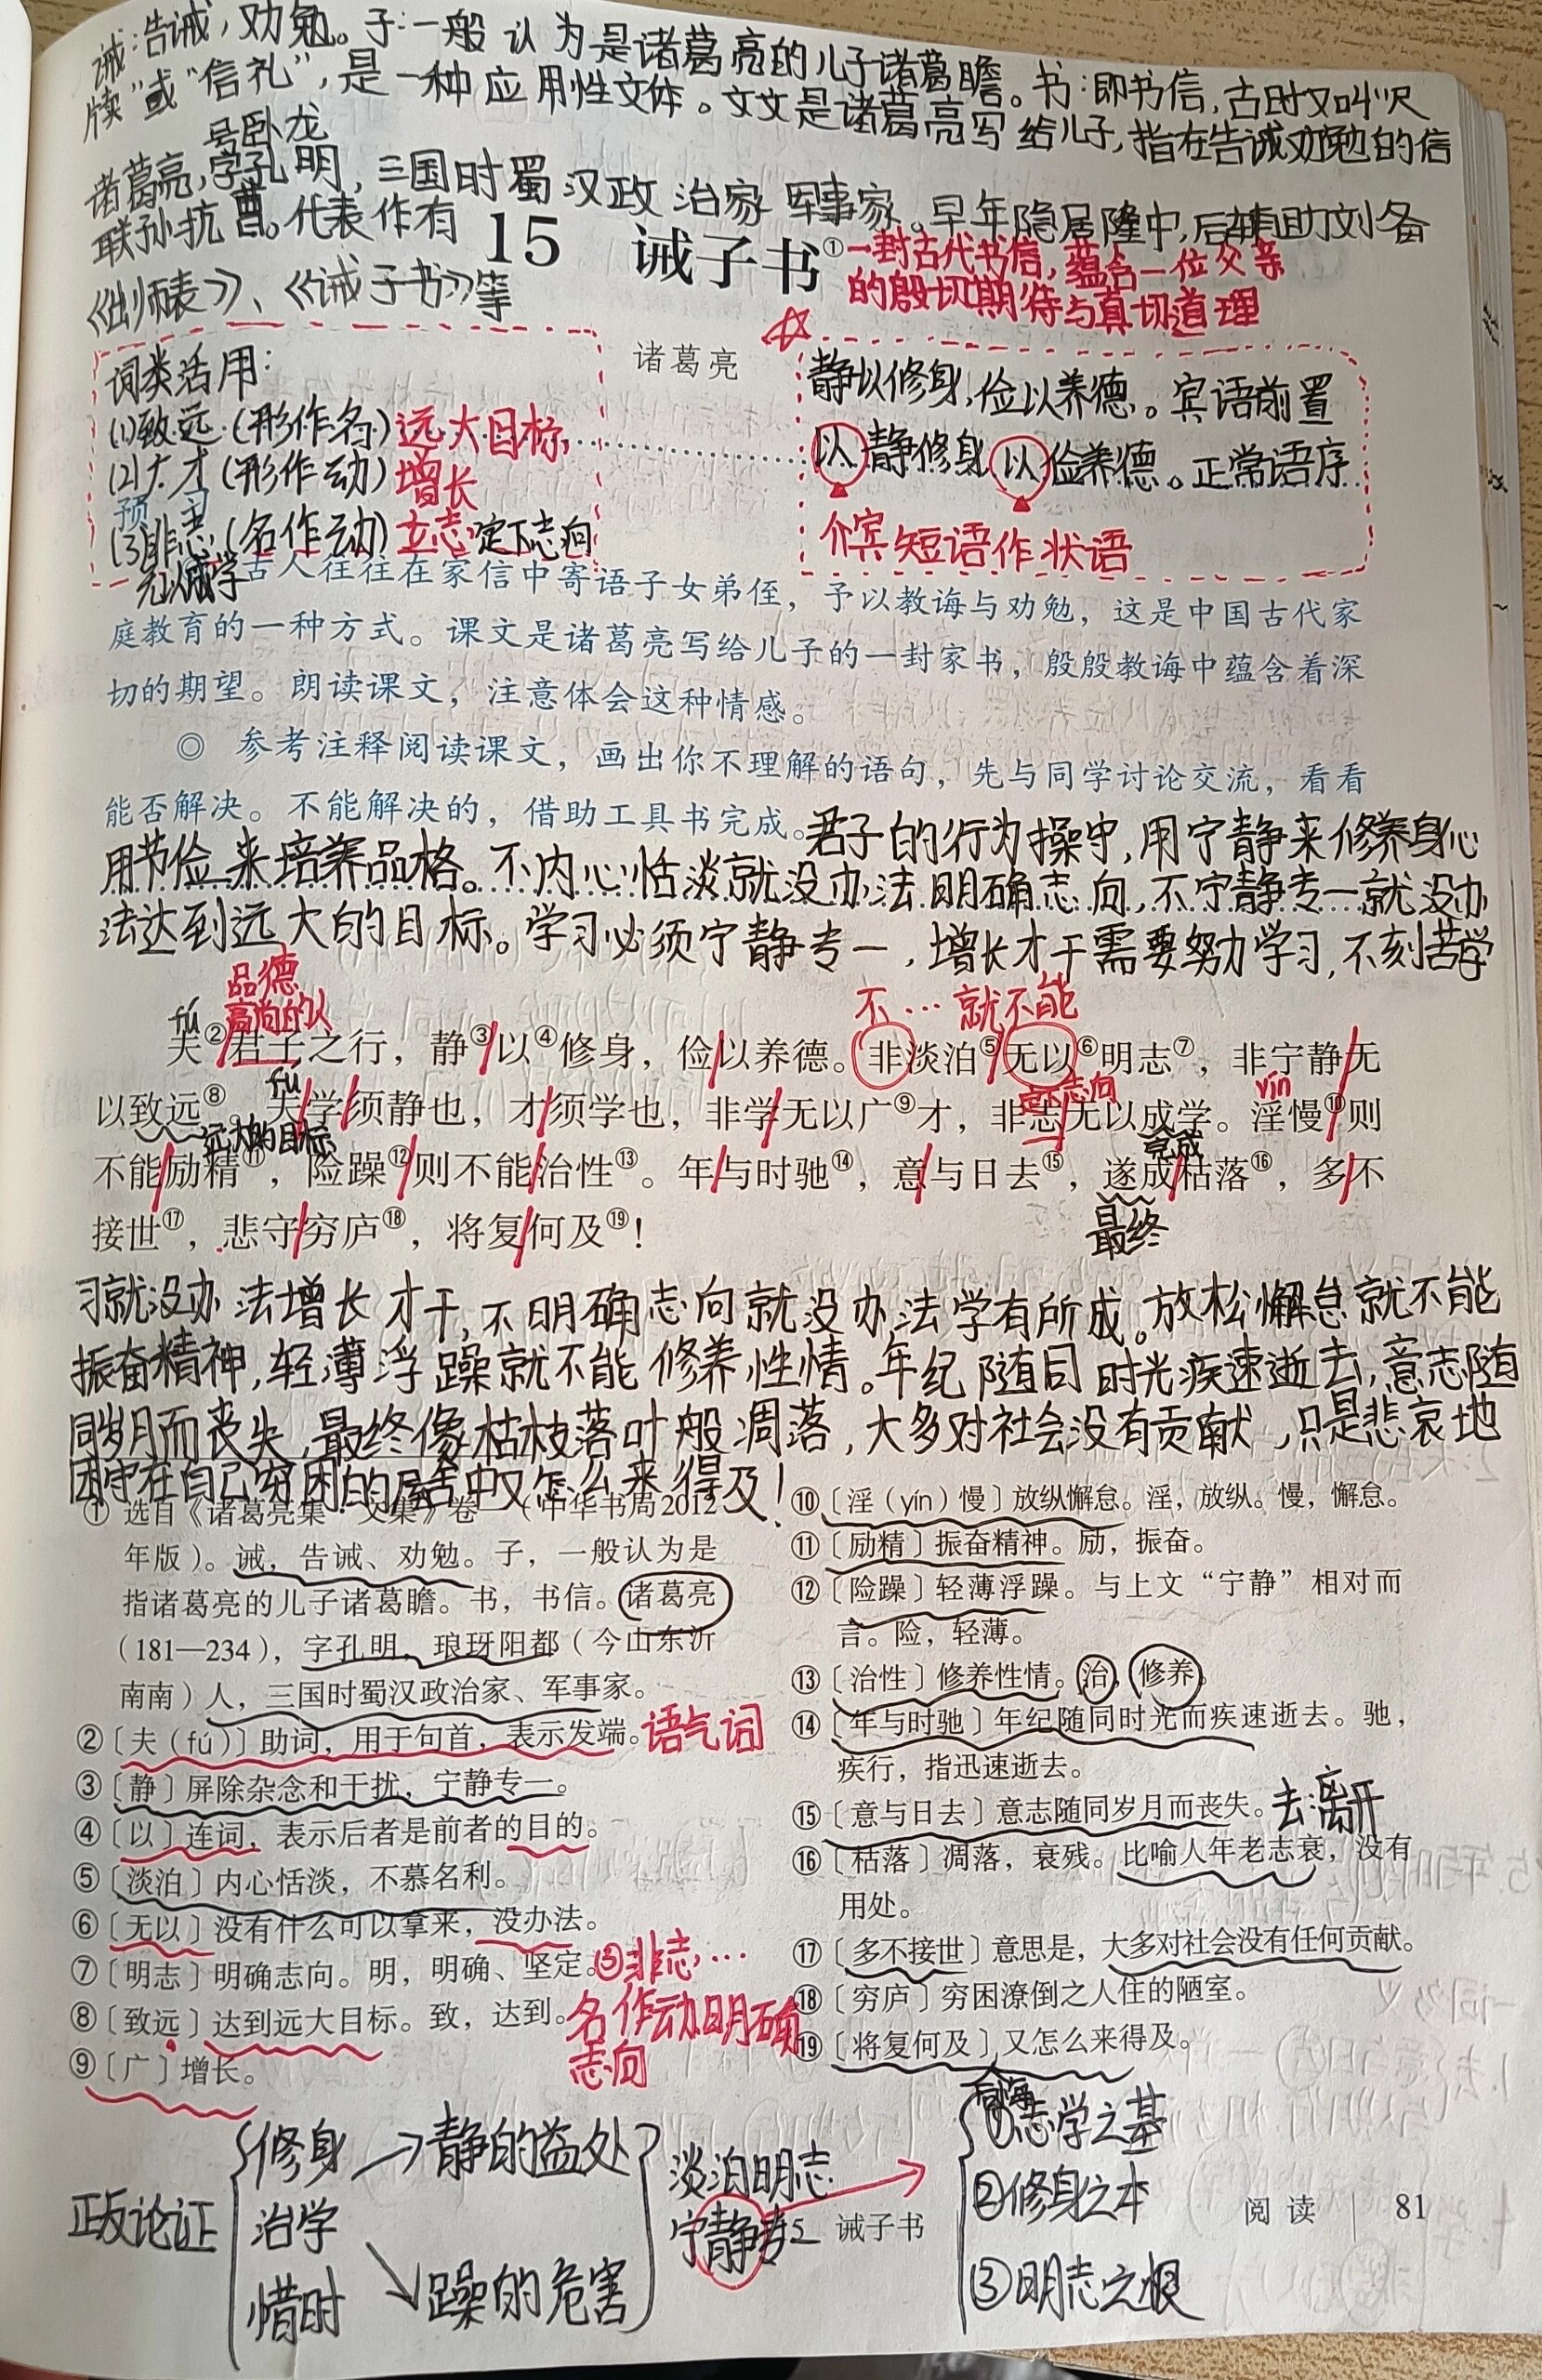 诫:告诫,劝勉。子:一般认为是诸葛亮的儿子诸葛瞻。书:即书信,古时又叫“尺
牍”或“信礼”,是一种应用性文体。文文是诸葛亮写给儿子,指在告诫劝勉的信
号卧龙
诸葛亮,字孔明,三国时蜀汉政治家 军事家。早年隐居隆中,后辅助刘备
联孙抗曹。代表作有
《出师表》、《诫子书》等
15 诫子书①
一封古代书信,蕴含一位父亲
的殷切期待与真切道理
诸葛亮
词类活用:
(1)致远(形作名)远大目标
(2)广才(形作动)增长
(3)非志(名作动)立志定下志向
无以成学
静以修身,俭以养德。宾语前置
以静修身 以俭养德。正常语序
介宾短语作状语
预习
古人往往在家信中寄语子女弟侄,予以教诲与劝勉,这是中国古代家
庭教育的一种方式。课文是诸葛亮写给儿子的一封家书,殷殷教诲中蕴含着深
切的期望。朗读课文,注意体会这种情感。
◎ 参考注释阅读课文,画出你不理解的语句,先与同学讨论交流,看看
能否解决。不能解决的,借助工具书完成。
君子的行为操守,用宁静来修养身心
用节俭来培养品格。不内心恬淡就没办法明确志向,不宁静专一就没办
法达到远大的目标。学习必须宁静专一,增长才干需要努力学习,不刻苦学
品德
高尚的人
不…就不能
fú
夫②君子之行,静③以④修身,俭以养德。非淡泊⑤无以⑥明志⑦,非宁静无
fú
志向
yín
以致远⑧。夫学须静也,才须学也,非学无以广⑨才,非志无以成学。淫慢⑩则
远大的目标
完成
不能励精⑪,险躁⑫则不能治性⑬。年与时驰⑭,意与日去⑮,遂成枯落⑯,多不
最终
接世⑰,悲守穷庐⑱,将复何及⑲!
习就没办法增长才干,不明确志向就没办法学有所成。放松懈怠就不能
振奋精神,轻薄浮躁就不能修养性情。年纪随同时光疾速逝去,意志随
同岁月而丧失,最终像枯枝落叶般凋落,大多对社会没有贡献,只是悲哀地
困守在自己穷困的居舍中又怎么来得及!
① 选自《诸葛亮集·文集》卷一(中华书局2012
年版)。诫,告诫、劝勉。子,一般认为是
指诸葛亮的儿子诸葛瞻。书,书信。诸葛亮
(181—234),字孔明,琅玡阳都(今山东沂
南南)人,三国时蜀汉政治家、军事家。
②〔夫(fú)〕助词,用于句首,表示发端。语气词
③〔静〕屏除杂念和干扰,宁静专一。
④〔以〕连词,表示后者是前者的目的。
⑤〔淡泊〕内心恬淡,不慕名利。
⑥〔无以〕没有什么可以拿来,没办法。
⑦〔明志〕明确志向。明,明确、坚定。
⑧〔致远〕达到远大目标。致,达到。
⑨〔广〕增长。
③非志,…
名作动明确
志向
⑩〔淫(yín)慢〕放纵懈怠。淫,放纵。慢,懈怠。
⑪〔励精〕振奋精神。励,振奋。
⑫〔险躁〕轻薄浮躁。与上文“宁静”相对而
言。险,轻薄。
⑬〔治性〕修养性情。治,修养。
⑭〔年与时驰〕年纪随同时光而疾速逝去。驰,
疾行,指迅速逝去。
⑮〔意与日去〕意志随同岁月而丧失。去:离开
⑯〔枯落〕凋落,衰残。比喻人年老志衰,没有
用处。
⑰〔多不接世〕意思是,大多对社会没有任何贡献。
⑱〔穷庐〕穷困潦倒之人住的陋室。
⑲〔将复何及〕又怎么来得及。
正反论证
修身→静的益处
治学
惜时
躁的危害
淡泊明志
宁静
①志学之基
②修身之本
③明志之根
诫子书
阅读 | 81